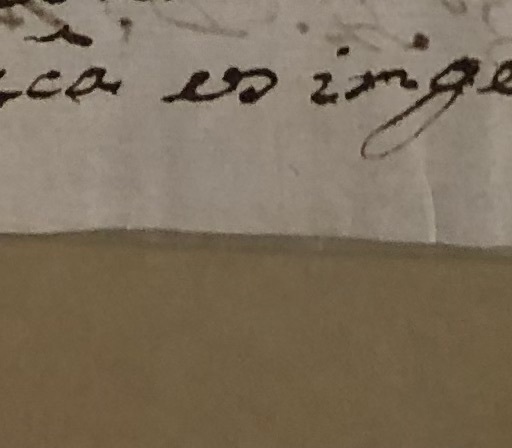 ca es inge